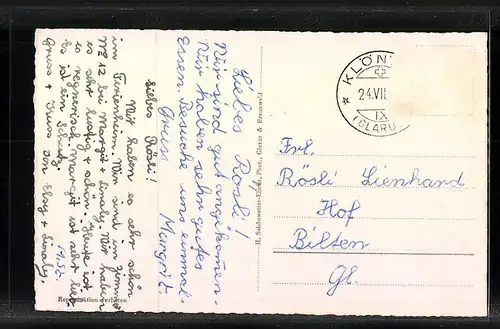 Liebes Rösli!
Wir haben es sehr schön
im Ferienheim. Wir sind im Zimmer
No 12 bei Margrit + Wir haben
es sehr lustig + schön. Heute ist
es regnerisch. Margrit ist sehr lieb
Es ist ein Schatz.
Gruss + Kuss von Elsy +
1952
Liebes Rösli!
Wir sind gut angekommen.
Wir haben sehr gutes
Essen. Besuche uns einmal.
Gruss
Margrit.
Reproduktion verboten
H. Schönwetter-Elmer, Phot., Glarus & Braunwald
KLÖN
24.VII
IX
(GLARU
Frl.
Rösli Lienhard
Hof
Bilten
Gl.